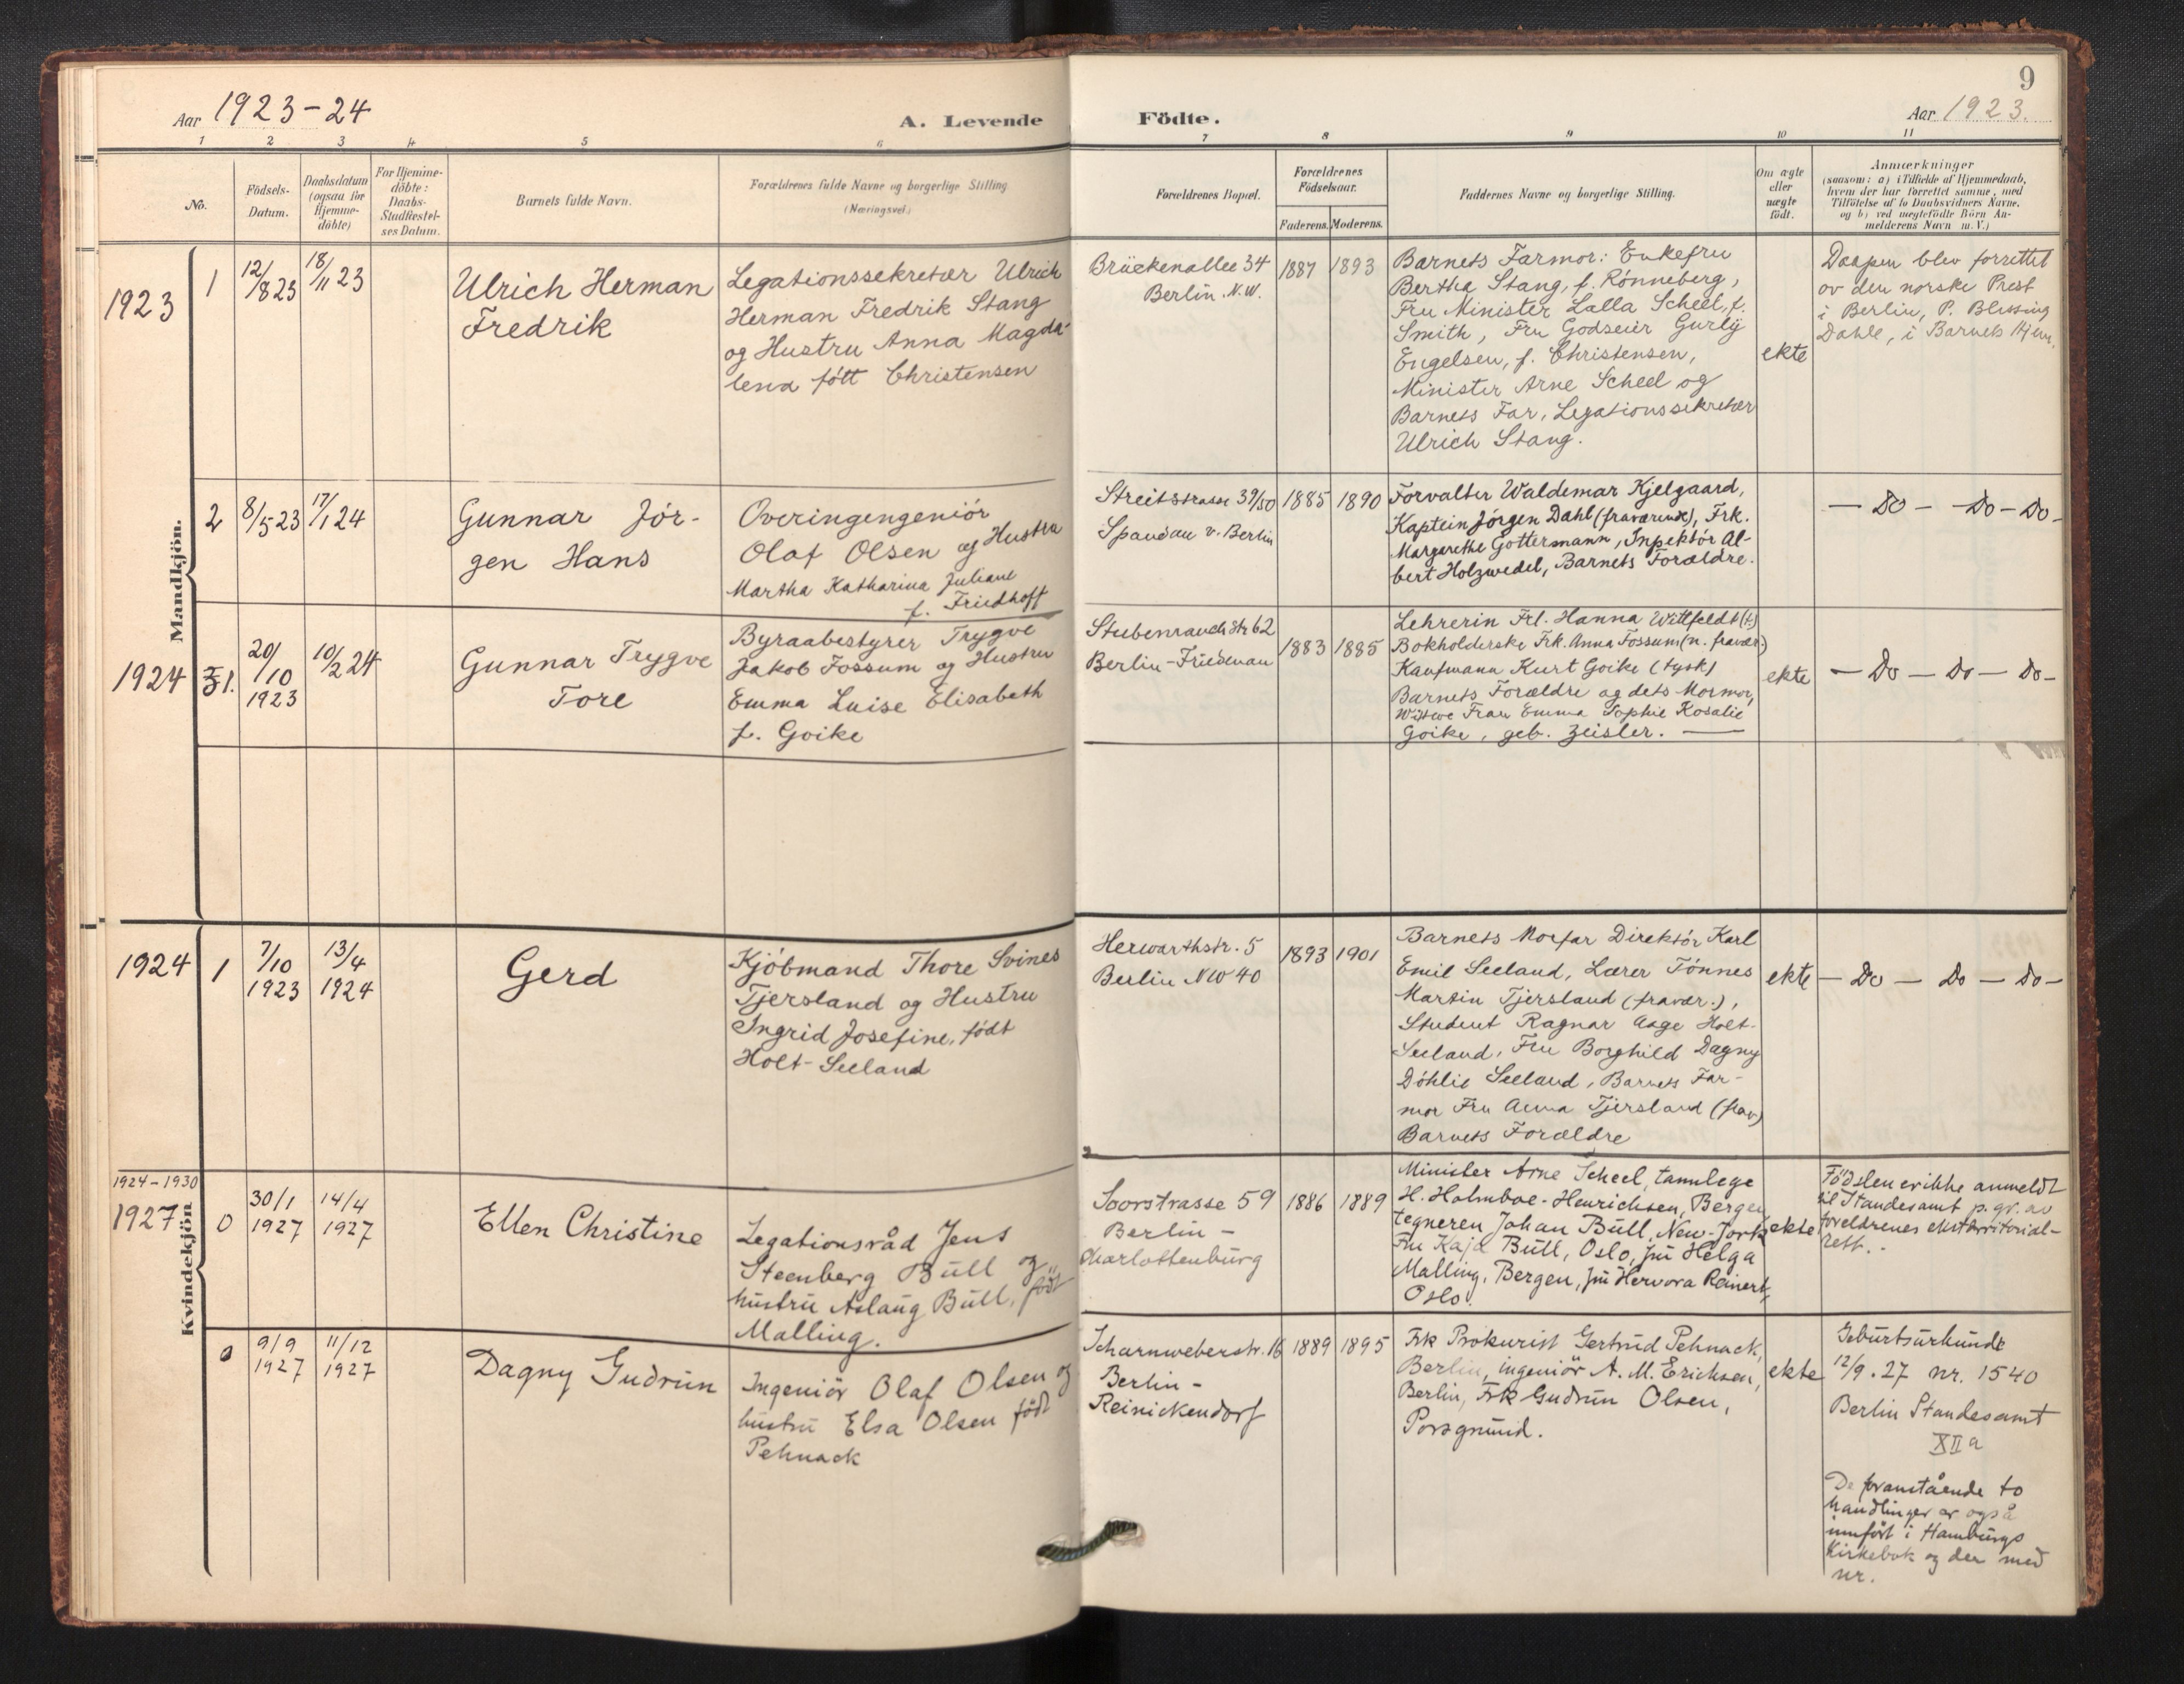 Aar 1923-24
A. Levende
Födte.
9
Aar 1923.
1 2 3 4 5 6 7 8 9 10 11
No.
Födsels-
Datum.
Daabsdatum
(ogsaa for
Hjemme-
döbte)
For Hjemme-
döbte:
Daabs-
Stadfæstel-
ses Datum.
Barnets fulde Navn.
Forældrenes fulde Navne og borgerlige Stilling
(Næringsvei.)
Forældrenes Bopæl.
Forældrenes
Födselsaar.
Faderens. Moderens.
Faddernes Navne og borgerlige Stilling.
Om ægte
eller
uægte
födt.
Anmærkninger
(saasom: a) i Tilfælde af Hjemmedaab,
hvem der har forrettet samme, med
Tilföielse af to Daabsvidners Navne.
og b) ved uægtefödte Börn An-
melderens Navn m. V.)
Mandkjön.
1923
1
12/8 23
18/11 23
Ulrich Herman
Fredrik
Legationssekretær Ulrich
Herman Fredrik Stang
og Hustru Anna Magda-
lena fött Christensen
Brückenallee 34
Berlin. N.W.
1887
1893
Barnets Farmor: Enkefru
Bertha Stang, f. Rønneberg,
Fru Minister Lalla Scheel, f.
Smith, Fru Godseier Gurly
Engelsen, f. Christensen,
Minister Arne Scheel og
Barnets Far, Legationssekretær
Ulrich Stang.
ekte
Daapen blev forrettet
av den norske Prest
i Berlin, P. Blessing
Dahle, i Barnets Hjem.
2
8/5 23
17/1 24
Gunnar Jör-
gen Hans
Overingengeniör
Olaf Olsen og Hustru
Martha Katharina Juliane
f. Friedhoft
Streitstrasse 39/50
Spandau v. Berlin
1885
1890
Forvalter Waldemar Kjelgaard,
Kaptein Jörgen Dahl (fraværende), Frk.
Margarethe Gottermann, Inpektör Al-
bert Holzwedel, Barnets Forældre.
- Do - Do - Do -
1924
1.
20/10
1923
10/2 24
Gunnar Trygve
Tore
Byraabestyrer Trygve
Jakob Fossum og Hustru
Emma Luise Elisabeth
f. Goike
Stubenrauch Str 62
Berlin-Friedenau
1883
1885
Lehrerin Frl. Hanna Wittfeldt (t.)
Bokholderske Frk. Anna Fossum (n. fravær.)
Kaufmann Kurt Goike (tysk)
Barnets Forældre og dets Mormor,
Witwe Frau Emma Sophie Rosalie
Goike, geb. Zeisler. —
ekte
- Do - Do - Do -
Kvindekjön
1924
1
7/10
1923
13/4
1924
Gerd
Kjöbmand Thore Svines
Tjersland og Hustru
Ingrid Josefine, födt
Holt-Seeland
Herwarthstr. 5
Berlin NW 40
1893
1901
Barnets Morfar Direktör Karl
Emil Seeland, Lærer Tönnes
Martin Tjersland (fravær.),
Student Ragnar Aage Holt-
Seeland, Fru Borghild Dagny
Döhlie Seeland, Barnets Far-
mor Fru Anna Tjersland (frav)
Barnets Forældre
ekte
- Do - Do - Do -
1924-1930
1927
0
30/1
1927
14/4
1927
Ellen Christine
Legationsråd Jens
Steenberg Bull og
hustru Aslaug Bull, född
Malling.
Soorstrasse 59
Berlin -
Charlottenburg
1886
1889
Minister Arne Scheel, tannlege
H. Holmboe-Henrichsen, Bergen
tegneren Johan Bull, New-Jork
Fru Kaja Bull, Oslo, fru Helga
Malling, Bergen, fru Hervora Reinert,
Oslo.
ekte
Födslen er ikke anmeldt
til Standesamt p. gr. av
foreldrenes eksterritorial-
rett. -
0
9/9
1927
11/12
1927
Dagny Gudrun
Ingeniör Olaf Olsen og
hustru Elsa Olsen född
Pehnack
Scharnweberstr. 16
Berlin -
Reinickendorf
1889
1895
Frk Prokurist Gertrud Pehnack,
Berlin, ingeniör A. M. Erichsen,
Berlin, Frk Gudrun Olsen,
Porsgrund.
ekte
Geburtsurkunde
12/9.27 nr. 1540
Berlin Standesamt
XII a
De foranstående to
handlinger er også
innfört i Hamburgs
Kirkebok og der med
nr.